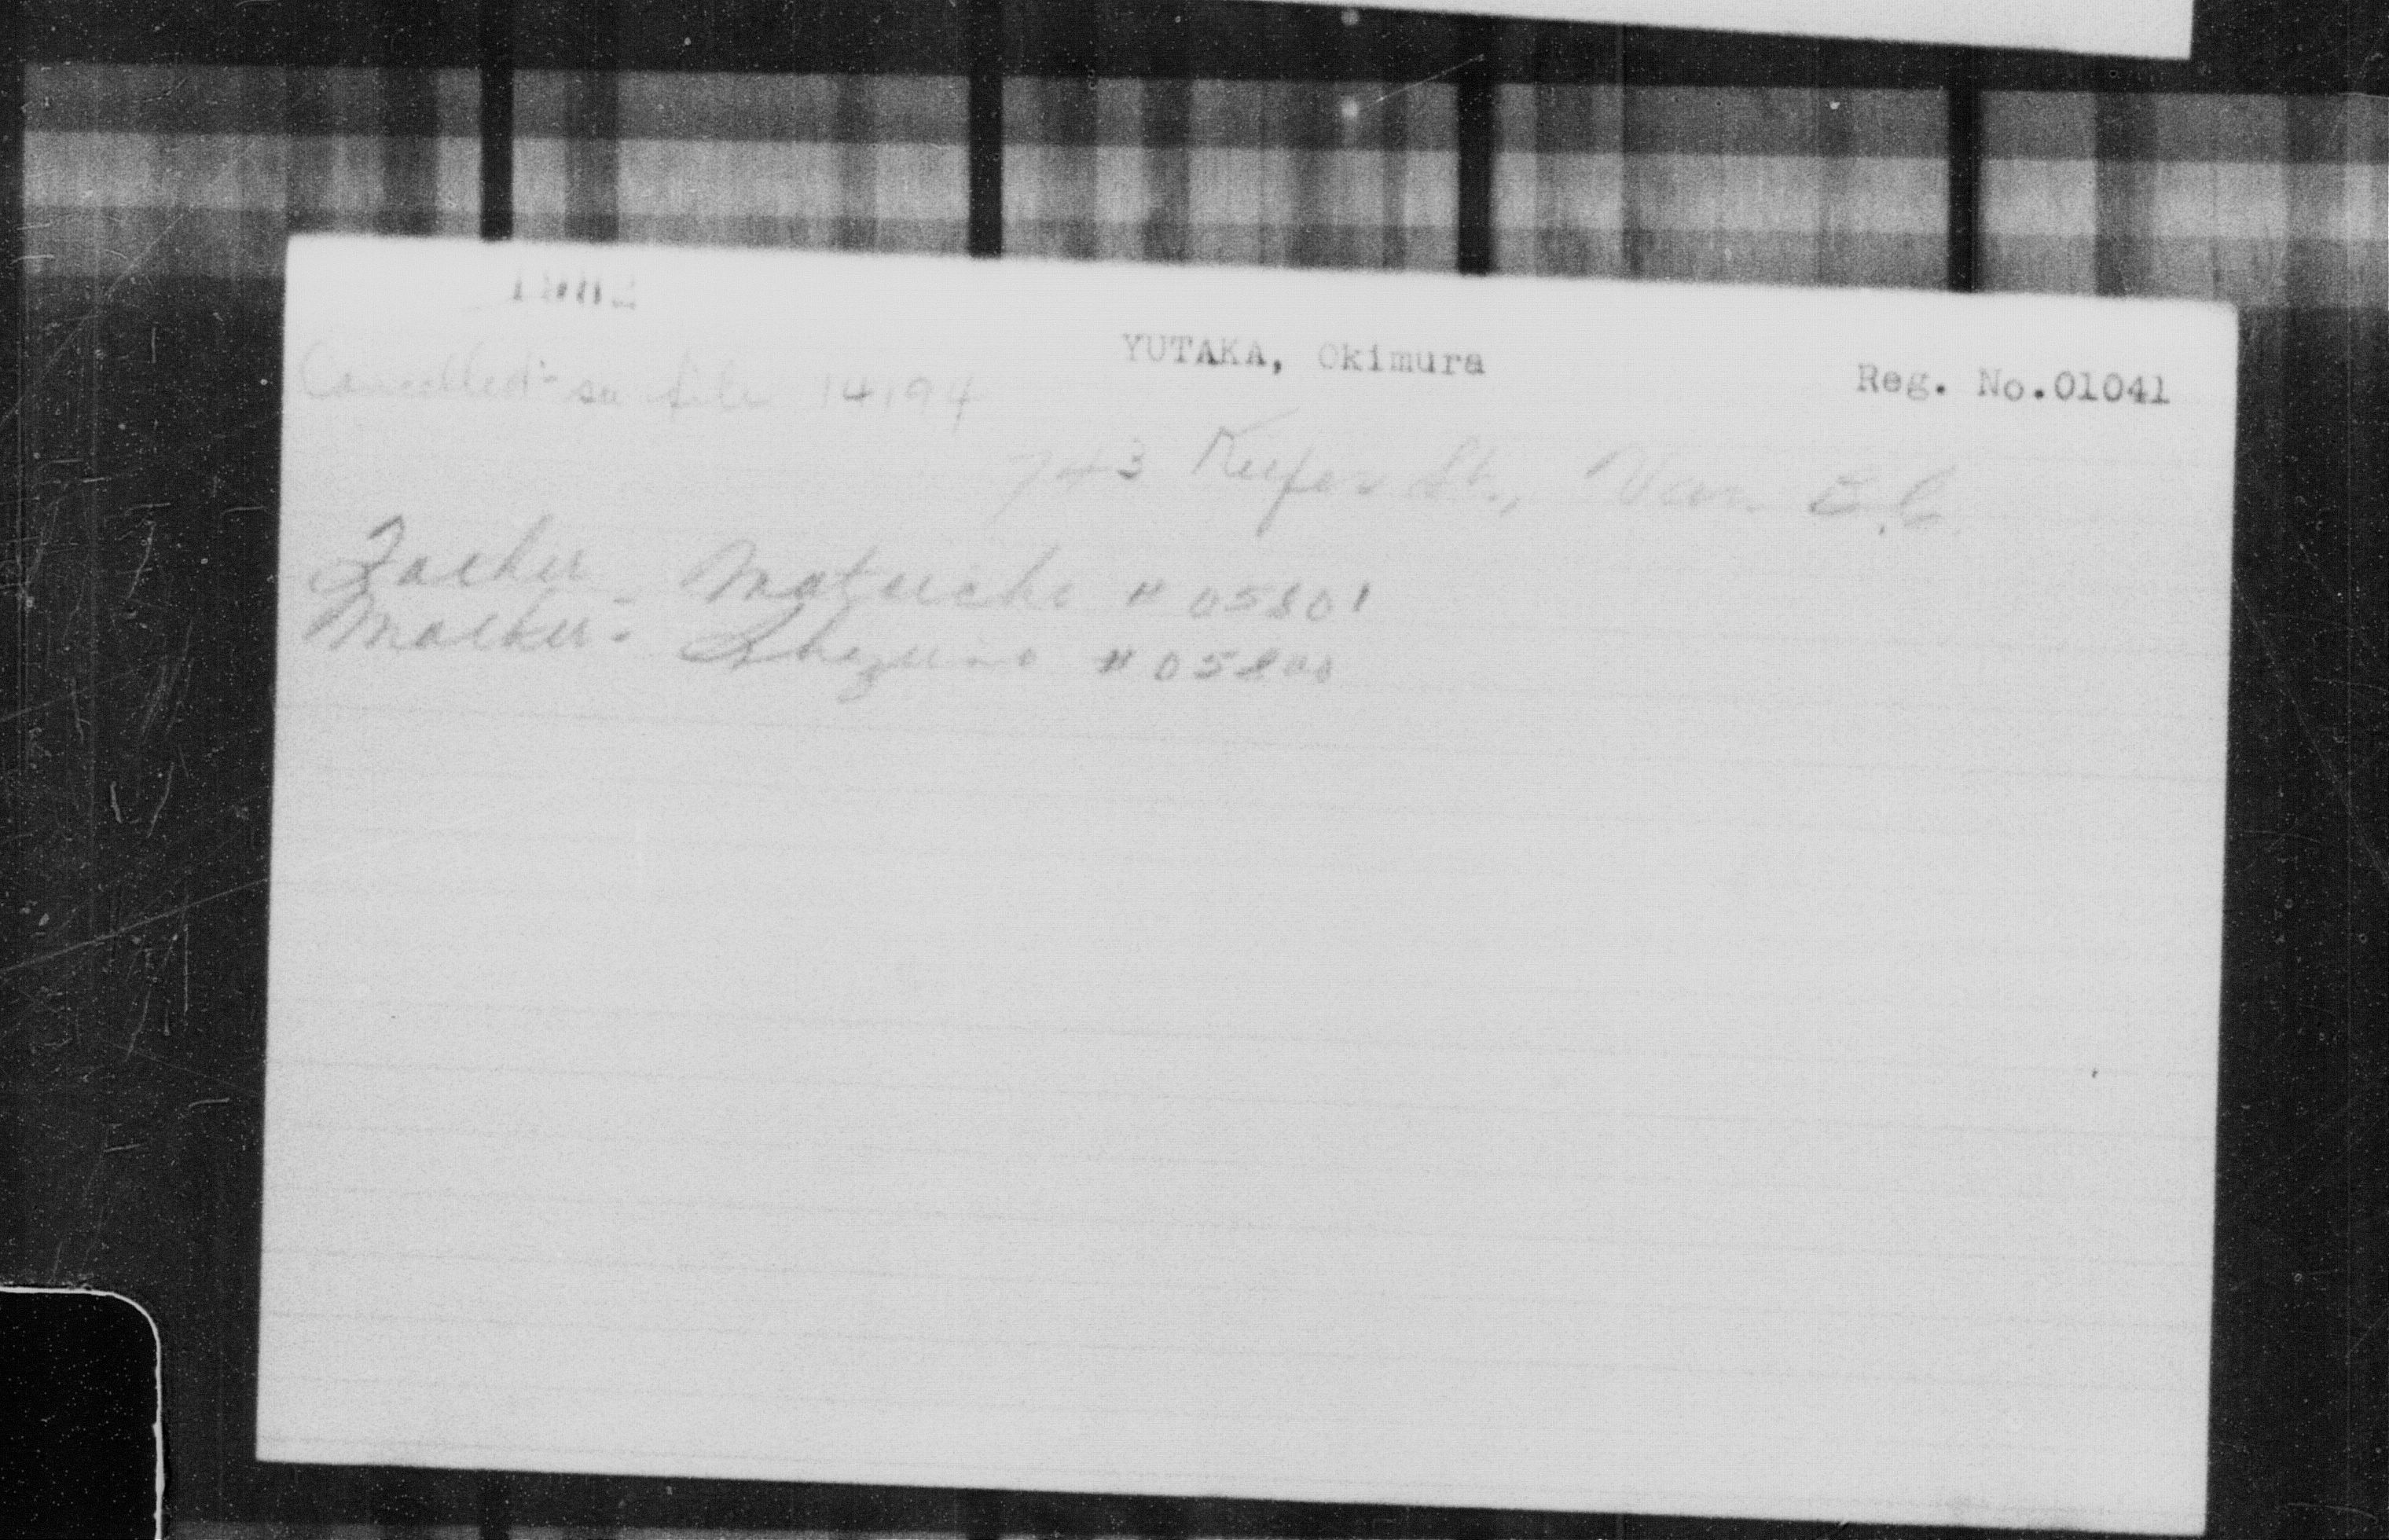 Cancelled - see file 14194
YUTAKA, Okimura
Reg. No.01041
743 Keefer St., Van. B.C.
Father - Matuichi # 05801
Mother - Shizuno # 05800